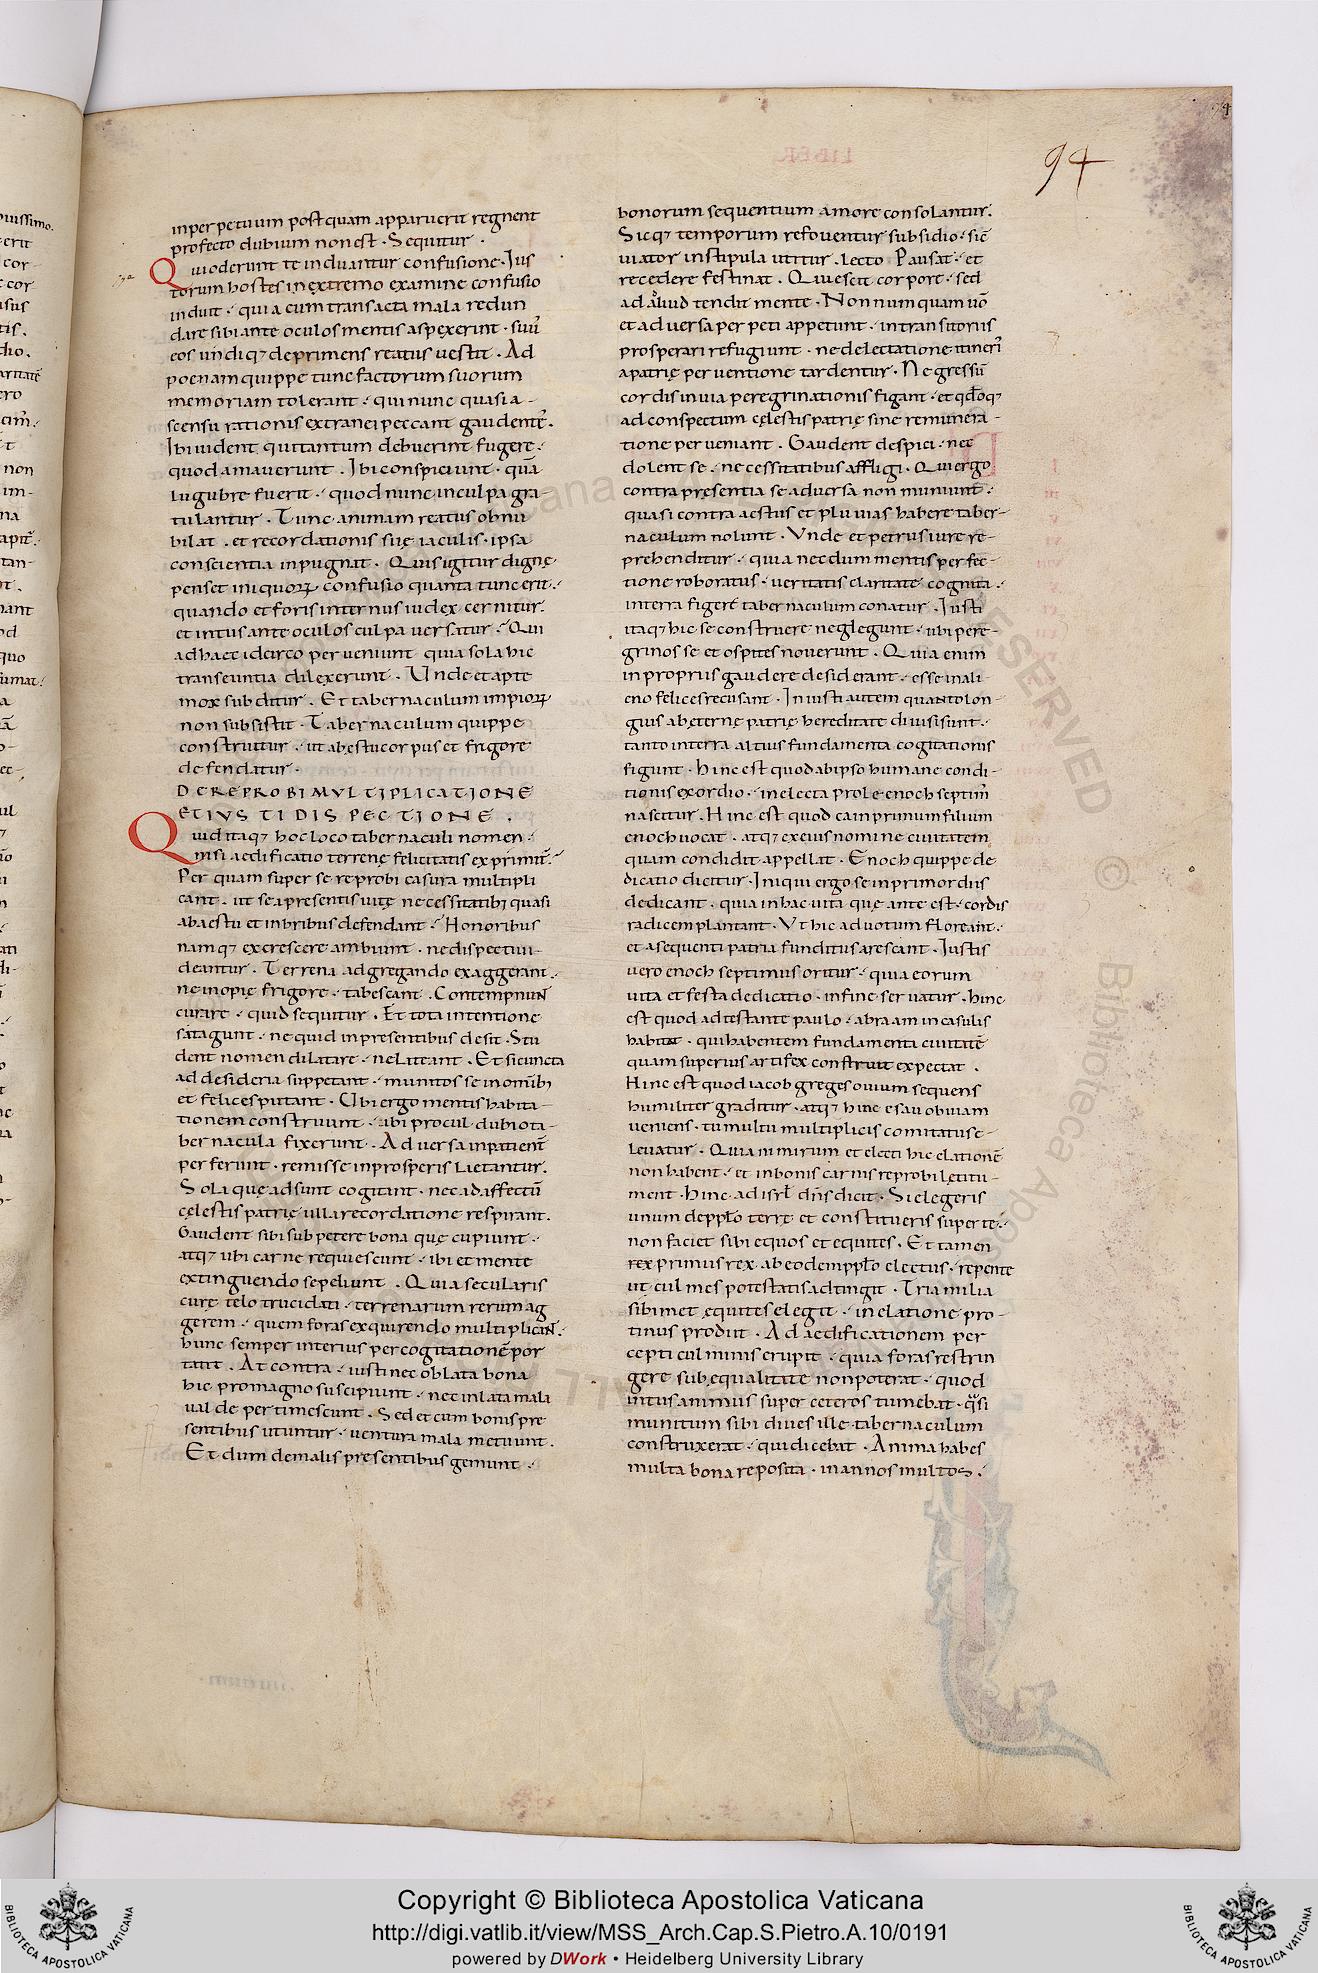 94
inperpetuum postquam apparuerit regnent
profecto dubium non est · Sequitur ·
Quioderunt te induantur confusione · Ius
torum hostes inextremo examine confusio
induit · quia cum transacta mala redun
dare sibi ante oculos mentis aspexerint · suũ
eos undiq; deprimens reatus uestit · Ad
poenam quippe tunc factorum suorum
memoriam tolerant · qui nunc quasi a-
scensu rationis extranei peccant gaudent̃ ·
Ibi uident qui tantum debuerint fugere ·
quod amauerunt · Ibi conspiciunt · quã
lugubre fuerit · quod nunc inculpa gra-
tulantur · Tunc animam reatus obnu
bilat · et recordationis suę iaculis · ipsa
conscientia inpugnat · Quis igitur digne
penset iniquoꝝ confusio quanta tunc erit ·
quando et foris internus iudex cernitur ·
et intus ante oculos culpa uersatur · Qui
adhaec idcirco perueniunt quia sola hic
transeuntia dilexerunt · Unde et apte
mox subditur · Et tabernaculum impioꝝ
non subsistit · Tabernaculum quippe
construitur · ut ab estu corpus et frigore
defendatur ·
DE REPROBI MULTIPLICATIONE
ET IUSTI DISPECTIONE ·
Quid itaq; hoc loco tabernaculi nomen ·
nisi aedificatio terrenę felicitatis exprimit̃ ·
Per quam super se reprobi casura multipli
cant · ut se a presentis uitę necessitatibꝫ quasi
ab aestu et inbribus defendant · Honoribus
namq; excrescere ambiunt · ne dispecti ui-
deantur · Terrena adgregando exaggerant ·
ne inopię frigore · tabescant · Contempnunt
curare · quid sequitur · Et tota intentione
satagunt · ne quid inpresentibus desit · Stu
dent nomen dilatare · ne lateant · Et si cuncta
ad desideria suppetant · munitos se in omnibꝫ
et felices putant · Ubi ergo mentis habita-
tionem construunt · ibi procul dubio ta-
bernacula fixerunt · Aduersa inpatient̃
perferunt · remisse in prosperis laetantur ·
Sola quę adsunt cogitant · nec ad affectũ
cęlestis patrię ulla recordatione respirant ·
Gaudent sibi subpetere bona quę cupiunt ·
atq; ubi carne requiescunt · ibi et mente
extinguendo sepeliunt · Quia secularis
curę telo trucidati · terrenarum rerum ag
gerem · quem foras exquirendo multiplicant ·
hunc semper interius per cogitationẽ por
tant · At contra · iusti nec oblata bona
hic pro magno suscipiunt · nec inlata mala
ualde pertimescunt · Sed et cum bonis pre
sentibus utuntur · uentura mala metuunt ·
Et dum de malis presentibus gemunt ·
bonorum sequentium amore consolantur ·
Sicq; temporum refouentur subsidio · sic̃
uiator in stipula utitur · lecto Pausat · et
recedere festinat · Quiescit corpore · sed
ad aliud tendit mente · Nonnumquam uõ
et aduersa perpeti appetunt · in transitoriis
prosperari refugiunt · ne delectatione itineri
a patrię peruentione tardentur · Ne gressũ
cordis in uia peregrinationis figant · et qdoq;
ad conspectum cęlestis patrię sine remunera-
tione perueniant · Gaudent despici · nec
dolent se · necessitatibus affligi · Qui ergo
contra presentia se aduersa non muniunt ·
quasi contra aestus et pluuias habere taber-
naculum nolunt · Unde et petrus iure re-
prehenditur · quia necdum mentis perfec-
tione roboratus · ueritatis claritate cognita ·
in terra figere tabernaculum conatur · Iusti
itaq; hic se construere neglegunt · ubi pere-
grinos se et ospites nouerunt · Quia enim
in propriis gaudere desiderant · esse in ali-
eno felices recusant · Iniusti autem quanto lon-
gius ab ęternę patrię hereditate diuisi sunt ·
tanto in terra altius fundamenta cogitationis
figunt · Hinc est quod ab ipso humane condi-
tionis exordio · in electa prole enoch septim̃
nascitur · Hinc est quod cain primum filium
enoch uocat · atq; ex eius nomine ciuitatem
quam condidit appellat · Enoch quippe de
dicatio dicitur · Iniqui ergo se in primordiis
dedicant · quia in hac uita quę ante est · cordis
radicem plantant · Ut hic ad uotum floreant ·
et a sequenti patria funditus arescant · Iustis
uero enoch septimus oritur · quia eorum
uita et festa dedicatio · in fine seruatur · hinc
est quod adtestante paulo · abraam in casulis
habitat · qui habentem fundamenta ciuitatẽ
quam superius artifex construit expectat ·
Hinc est quod iacob greges ouium sequens
humiliter graditur · atq; hinc esau obuiam
ueniens · tumultu multiplicis comitatus e-
leuatur · Quia nimirum et electi hic elationẽ
non habent · et in bonis carnis reprobi letitu-
ment · Hinc ad isrł dñs dicit · Si elegeris
unum de ppło terre et constitueris super te ·
non faciet sibi equos et equites · Et tamen
rex primus rex ab eodem ppło electus · repente
ut culmes potestatis adtingit · Tria milia
sibimet equites elegit · in elatione pro-
tinus prodiit · Ad aedificationem per
cepti culminis erupit · quia foras restrin
gere sub equalitate non poterat · quod
intus animus super ceteros tumebat · qͣsi
munitum sibi diues ille tabernaculum
construxerat · qui dicebat · Anima habes
multa bona reposita · in annos multos ·
Copyright © Biblioteca Apostolica Vaticana
http://digi.vatlib.it/view/MSS_Arch.Cap.S.Pietro.A.10/0191
powered by DWork • Heidelberg University Library
BIBLIOTECA APOSTOLICA VATICANA
BIBLIOTECA APOSTOLICA VATICANA